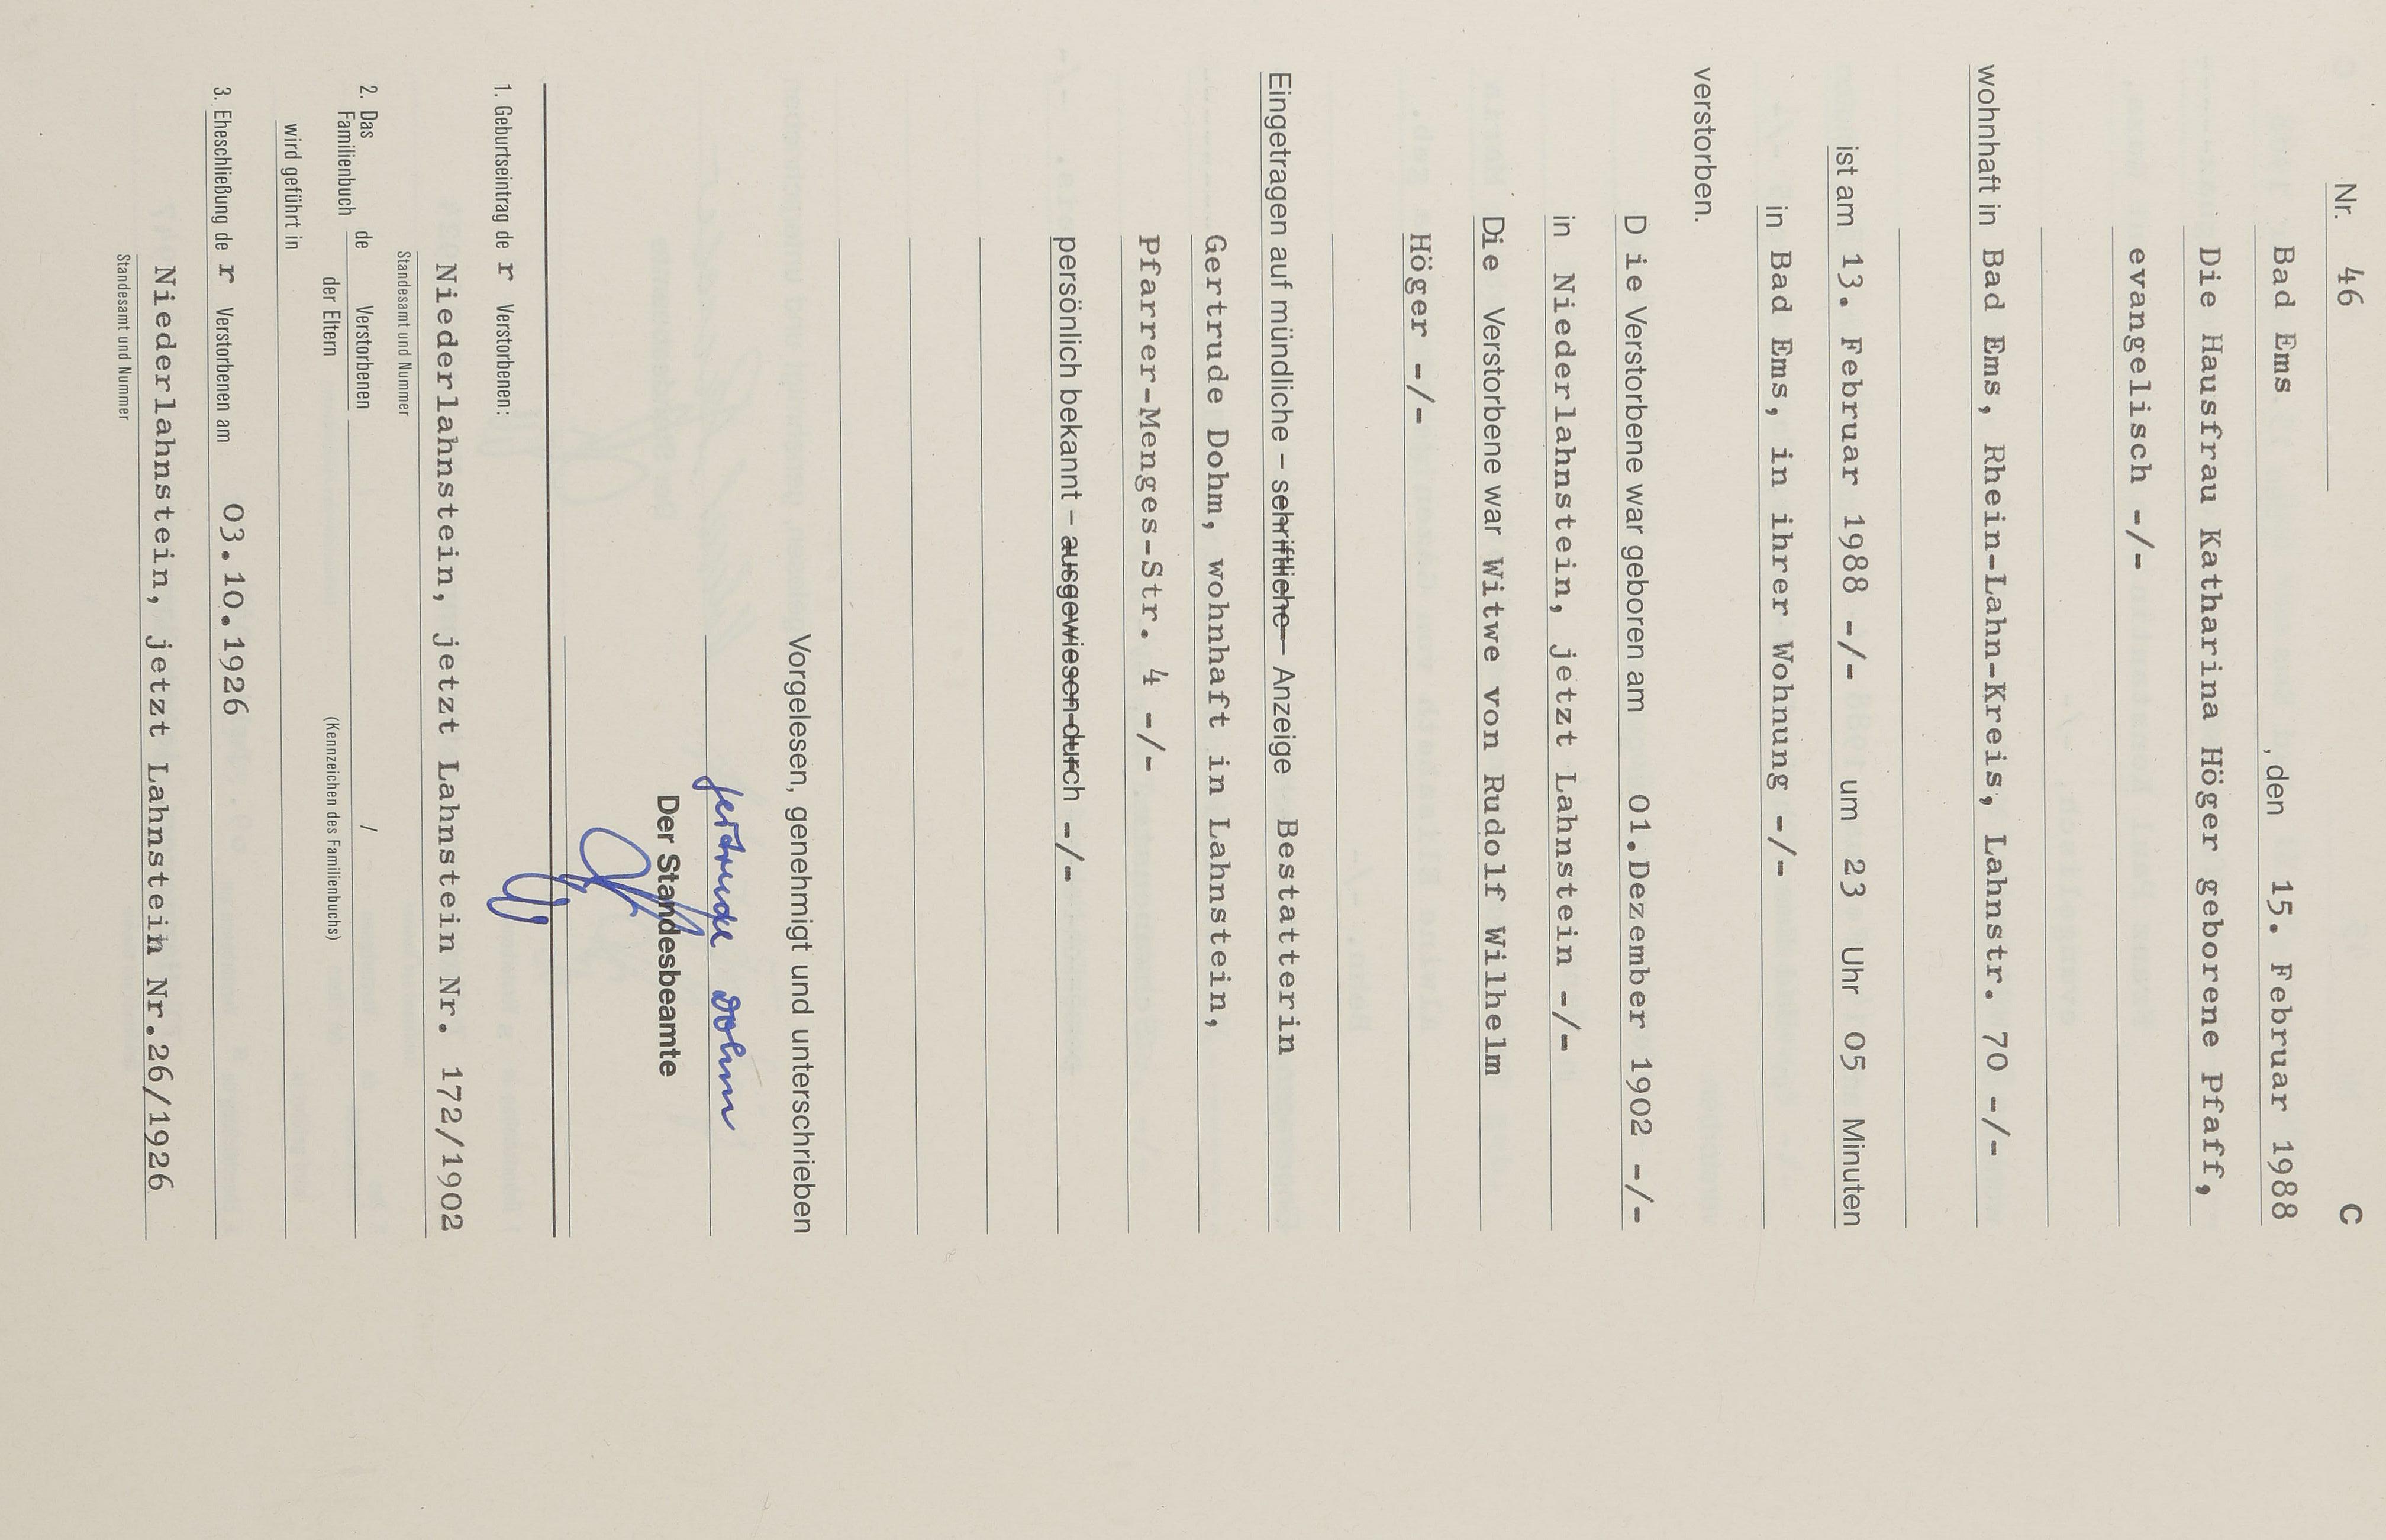 Nr. 46 C
Bad Ems , den 15. Februar 1988
Die Hausfrau Katharina Höger geborene Pfaff,
evangelisch -/-
wohnhaft in Bad Ems, Rhein-Lahn-Kreis, Lahnstr. 70 -/-
ist am 13. Februar 1988 -/- um 23 Uhr 05 Minuten
in Bad Ems, in ihrer Wohnung -/-
verstorben.
D ie Verstorbene war geboren am 01.Dezember 1902 -/-
in Niederlahnstein, jetzt Lahnstein -/-
Die Verstorbene war Witwe von Rudolf Wilhelm
Höger -/-
Eingetragen auf mündliche – schriftliche – Anzeige Bestatterin
Gertrude Dohm, wohnhaft in Lahnstein,
Pfarrer-Menges-Str. 4 -/-
persönlich bekannt – ausgewiesen durch -/-
Vorgelesen, genehmigt und unterschrieben
Gertrude Dohm
Der Standesbeamte
1. Geburtseintrag de r Verstorbenen:
Niederlahnstein, jetzt Lahnstein Nr. 172/1902
Standesamt und Nummer
2. Das Familienbuch de Verstorbenen /
der Eltern (Kennzeichen des Familienbuchs)
wird geführt in
3. Eheschließung de r Verstorbenen am 03.10.1926
Niederlahnstein, jetzt Lahnstein Nr.26/1926
Standesamt und Nummer